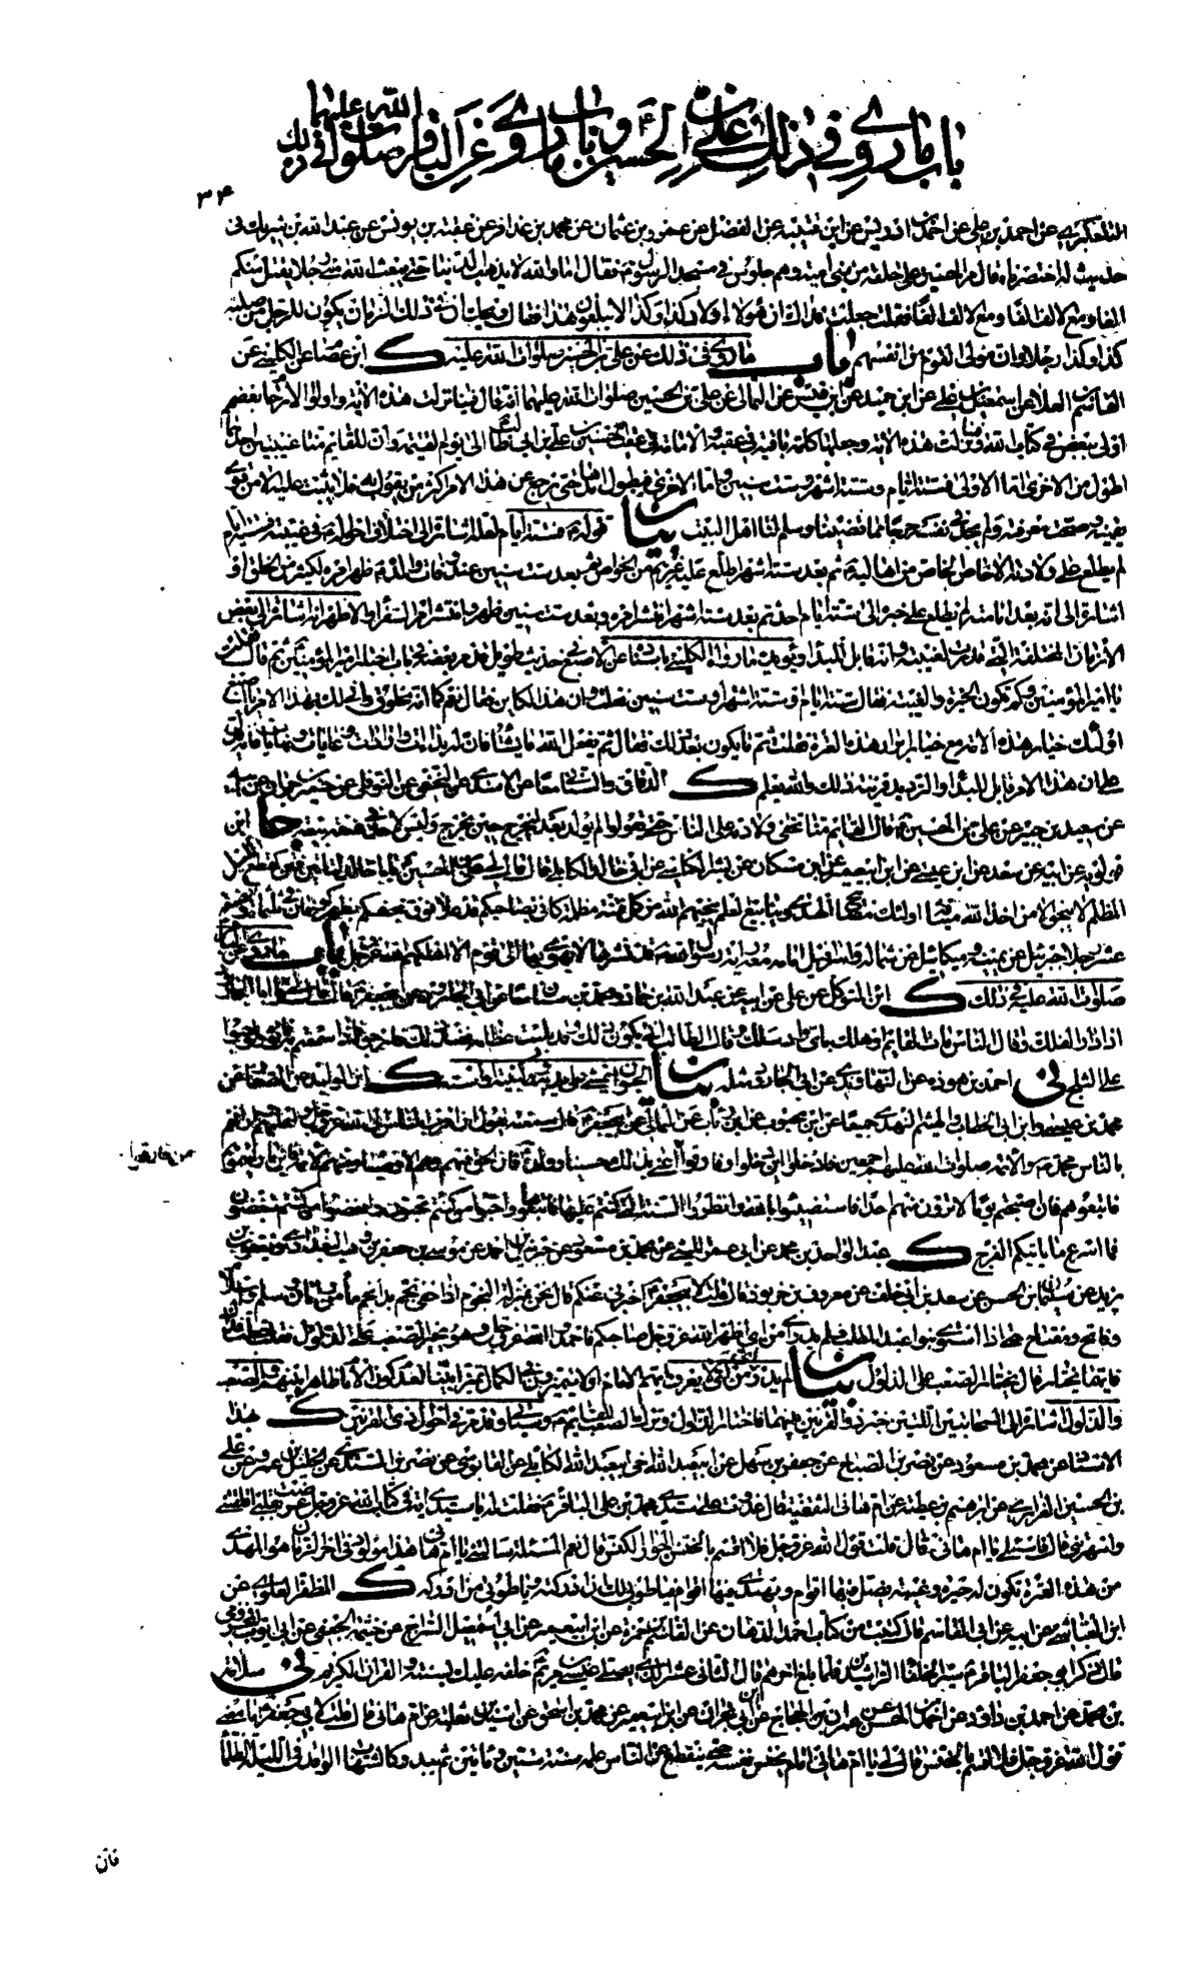 باب ما روي في ذلك عن علي بن الحسين وباب ما روي عن الباقر صلوات الله عليهما في ذلك
٣٤
التلعكبري عن احمد بن علي عن احمد بن ادريس عن ابن قتيبة عن الفضل عن عمرو بن عثمان عن محمد بن عذافر عن عقبة بن يونس عن عبد الله بن شريك في
حديث له اختصرناه قال مر الحسين على حلقة من بني امية وهم جلوس في مسجد الرسول فقال اما والله لا يذهب الدنيا حتى يبعث الله مني رجلا يقتل منكم
الفا ومع الالف الفا ومع الالف الفا فقلت جعلت فداك ان هؤلاء اولاد كذا وكذا لا يبلغون هذا فقال ويحك ان في ذلك الزمان يكون للرجل من صلبه
كذا وكذا رجلا وان مولى القوم من انفسهم باب ما روي في ذلك عن علي بن الحسين صلوات الله عليه ك ابن عصام عن الكليني عن
القاسم بن العلا عن اسمعيل بن علي عن ابن حميد عن ابن قيس عن الثمالي عن علي بن الحسين صلوات الله عليهما انه قال فينا نزلت هذه الاية واولوا الارحام بعضهم
اولى ببعض في كتاب الله وفينا نزلت هذه الاية وجعلها كلمة باقية في عقبه والامامة في عقب الحسين بن علي بن ابي طالب الى يوم القيمة وان للقائم منا غيبتين احداهما
اطول من الاخرى اما الاولى فستة ايام وستة اشهر وست سنين واما الاخرى فيطول امدها حتى يرجع عن هذا الامر اكثر من يقول به فلا يثبت عليه الا من قوي
يقينه وصحت معرفته ولم يجد في نفسه حرجا مما قضينا وسلم لنا اهل البيت بيان قوله فستة ايام لعله اشارة الى اختلاف احواله في غيبته فستة ايام
لم يطلع على ولادته الا خاص الخاص من اهاليه ثم بعد ستة اشهر اطلع عليه غيرهم من الخواص ثم بعد ست سنين عند وفات والده ظهر امره لكثير من الخلق او
اشارة الى انه بعد امامته لم يطلع على خبره الى ستة ايام احد ثم بعد ستة اشهر انتشر امره وبعد ست سنين ظهر وانتشر امر السفراء والاظهر انه اشارة الى بعض
الازمان المختلفة التي قدرت لغيبته وانه قابل للبداء ويؤيده ما رواه الكليني باسناده عن الاصبغ في حديث طويل قد مر بعضه في باب اخبار امير المؤمنين ثم قال فقلت
يا امير المؤمنين وكم تكون الحيرة والغيبة فقال ستة ايام او ستة اشهر او ست سنين فقلت وان هذا لكائن فقال نعم كما انه مخلوق وانى لك بهذا الامر يا اصبغ
اولئك خيار هذه الامة مع خيار ابرار هذه العترة فقلت ثم ما يكون بعد ذلك فقال ثم يفعل الله ما يشاء فان له بداءات وارادات وغايات ونهايات فانه يدل
على ان هذا الامر قابل للبداء والترديد قرينة ذلك والله يعلم ك الدقاق والشيباني معا عن الاسدي عن النخعي عن النوفلي عن حمزة بن حمران عن ابيه
عن سعيد بن جبير عن علي بن الحسين قال القائم منا تخفى ولادته على الناس حتى يقولوا لم يولد بعد ليخرج حين يخرج وليس لاحد في عنقه بيعة جا ابن
قولويه عن ابيه عن سعد عن ابن عيسى عن ابن ابي عمير عن ابن مسكان عن بشر الكناسي عن ابي خالد الكابلي قال قال لي علي بن الحسين يا با خالد لتأتين فتن كقطع الليل
المظلم لا ينجو الا من اخذ الله ميثاقه اولئك مصابيح الهدى وينابيع العلم ينجيهم الله من كل فتنة مظلمة كاني بصاحبكم قد علا فوق نجفكم بظهر كوفان في ثلثمائة وبضعة
عشر رجلا جبرئيل عن يمينه وميكائيل عن شماله واسرافيل امامه معه راية رسول الله قد نشرها لا يهوي بها الى قوم الا اهلكهم الله عز وجل باب ما روي عن الباقر
صلوات الله عليه في ذلك ك ابن المتوكل عن علي عن ابيه عن عبد الله بن حماد ومحمد بن سنان معا عن ابي الجارود عن ابي جعفر قال قال لي يا ابا الجارود
اذا دار الفلك وقال الناس مات القائم او هلك باي واد سلك وقال الطالب انى يكون ذلك وقد بليت عظامه فعند ذلك فارجوه واذا سمعتم به فأتوه ولو حبوا
على الثلج ني احمد بن هوذة عن النهاوندي عن ابي الجارود مثله بيان الحبو ان يمشي على يديه وركبتيه او استه ك ابن الوليد عن الصفار عن
محمد بن عيسى وابن ابي الخطاب والهيثم النهدي جميعا عن ابن محبوب عن ابن رئاب عن الثمالي عن ابي جعفر قال سمعته يقول ان اقرب الناس الى الله عز وجل واعلمهم وارأفهم
بالناس محمد والائمة صلوات الله عليهم اجمعين فادخلوا اين دخلوا وفارقوا من فارقوا اعني بذلك حسينا وولده فان الحق فيهم وهم الاوصياء ومنهم الائمة فاين ما رايتموهم
من فارقوا
فاتبعوهم فان اصبحتم يوما لا ترون منهم احدا فاستغيثوا بالله وانظروا السنة التي كنتم عليها فاتبعوها واحبوا من كنتم تحبون وابغضوا من كنتم تبغضون
فما اسرع ما يأتيكم الفرج ك عبد الواحد بن محمد عن ابي عمرو البلخي عن محمد بن مسعود عن جبرئيل بن احمد عن موسى بن جعفر بن وهب البغدادي ويعقوب بن
يزيد عن سليمان بن الحسن عن سعد بن ابي خلف عن معروف بن خربوذ قال قلت لابي جعفر اخبرني عنكم قال نحن بمنزلة النجوم اذا خفي نجم بدا نجم مأمن وامان وسلم واسلام
وفاتح ومفتاح حتى اذا استوى بنو عبد المطلب فلم يدر اي من اي اظهر الله عز وجل صاحبكم فاحمدوا الله عز وجل وهو يخير الصعب على الذلول فقلت جعلت فداك
فايهما يختار قال يختار الصعب على الذلول بيان لم يدر اي من اي لا يعرف ايهم الامام او لا يتميزون في الكمال تميزا بينا لعدم كون الامام ظاهرا بينهم والصعب
والذلول اشارة الى السحابتين اللتين خير ذو القرنين بينهما فاختار الذلول وترك الصعب للقائم وسيأتي وقد مر في احوال ذي القرنين ك بهذا
الاسناد عن محمد بن مسعود عن نصر بن الصباح عن جعفر بن سهل عن ابي عبد الله اخي ابي عبد الله الكابلي عن القابوسي عن نصر بن السندي عن الخليل بن عمرو عن علي
بن الحسين الفزاري عن ابرهيم بن عطية عن ام هاني الثقفية قال غدوت على سيدي محمد بن علي الباقر فقلت له يا سيدي اية في كتاب الله عز وجل عرضت بقلبي اقلقتني
واسهرتني قال فاسئلي يا ام هاني قال قلت قول الله عز وجل فلا اقسم بالخنس الجوار الكنس قال نعم المسئلة سالتني يا ام هاني هذا مولود في اخر الزمان هو المهدي
من هذه العترة تكون له حيرة وغيبة يضل فيها اقوام ويهتدي فيها اقوام فيا طوبى لك ان ادركته ويا طوبى من ادركه ك المظفر العلوي عن
ابن العياشي عن ابيه عن ابي القاسم قال كتبت من كتاب احمد الدهان عن القاسم بن حمزة عن ابن ابي عمير عن ابي اسمعيل السراج عن خيثمة الجعفي عن ابي ايوب المخزومي
قال ذكر ابو جعفر الباقر سير الخلفاء الراشدين فلما بلغ اخرهم قال الثاني عشر الذي يصلي عيسى بن مريم خلفه عليك بسنته والقران الكريم ني سلامة
بن محمد عن احمد بن داود عن احمد بن الحسن عن عمران بن الحجاج عن ابن ابي نجران عن ابن ابي عمير عن محمد بن اسحق عن اسيد بن ثعلبة عن ام هاني قال قلت لابي جعفر ما معنى
قول الله عز وجل فلا اقسم بالخنس قال لي يا ام هاني امام يخنس نفسه حتى ينقطع عن الناس علمه سنة ستين ومأتين ثم يبدو كالشهاب الواقد في الليلة الظلماء
فان